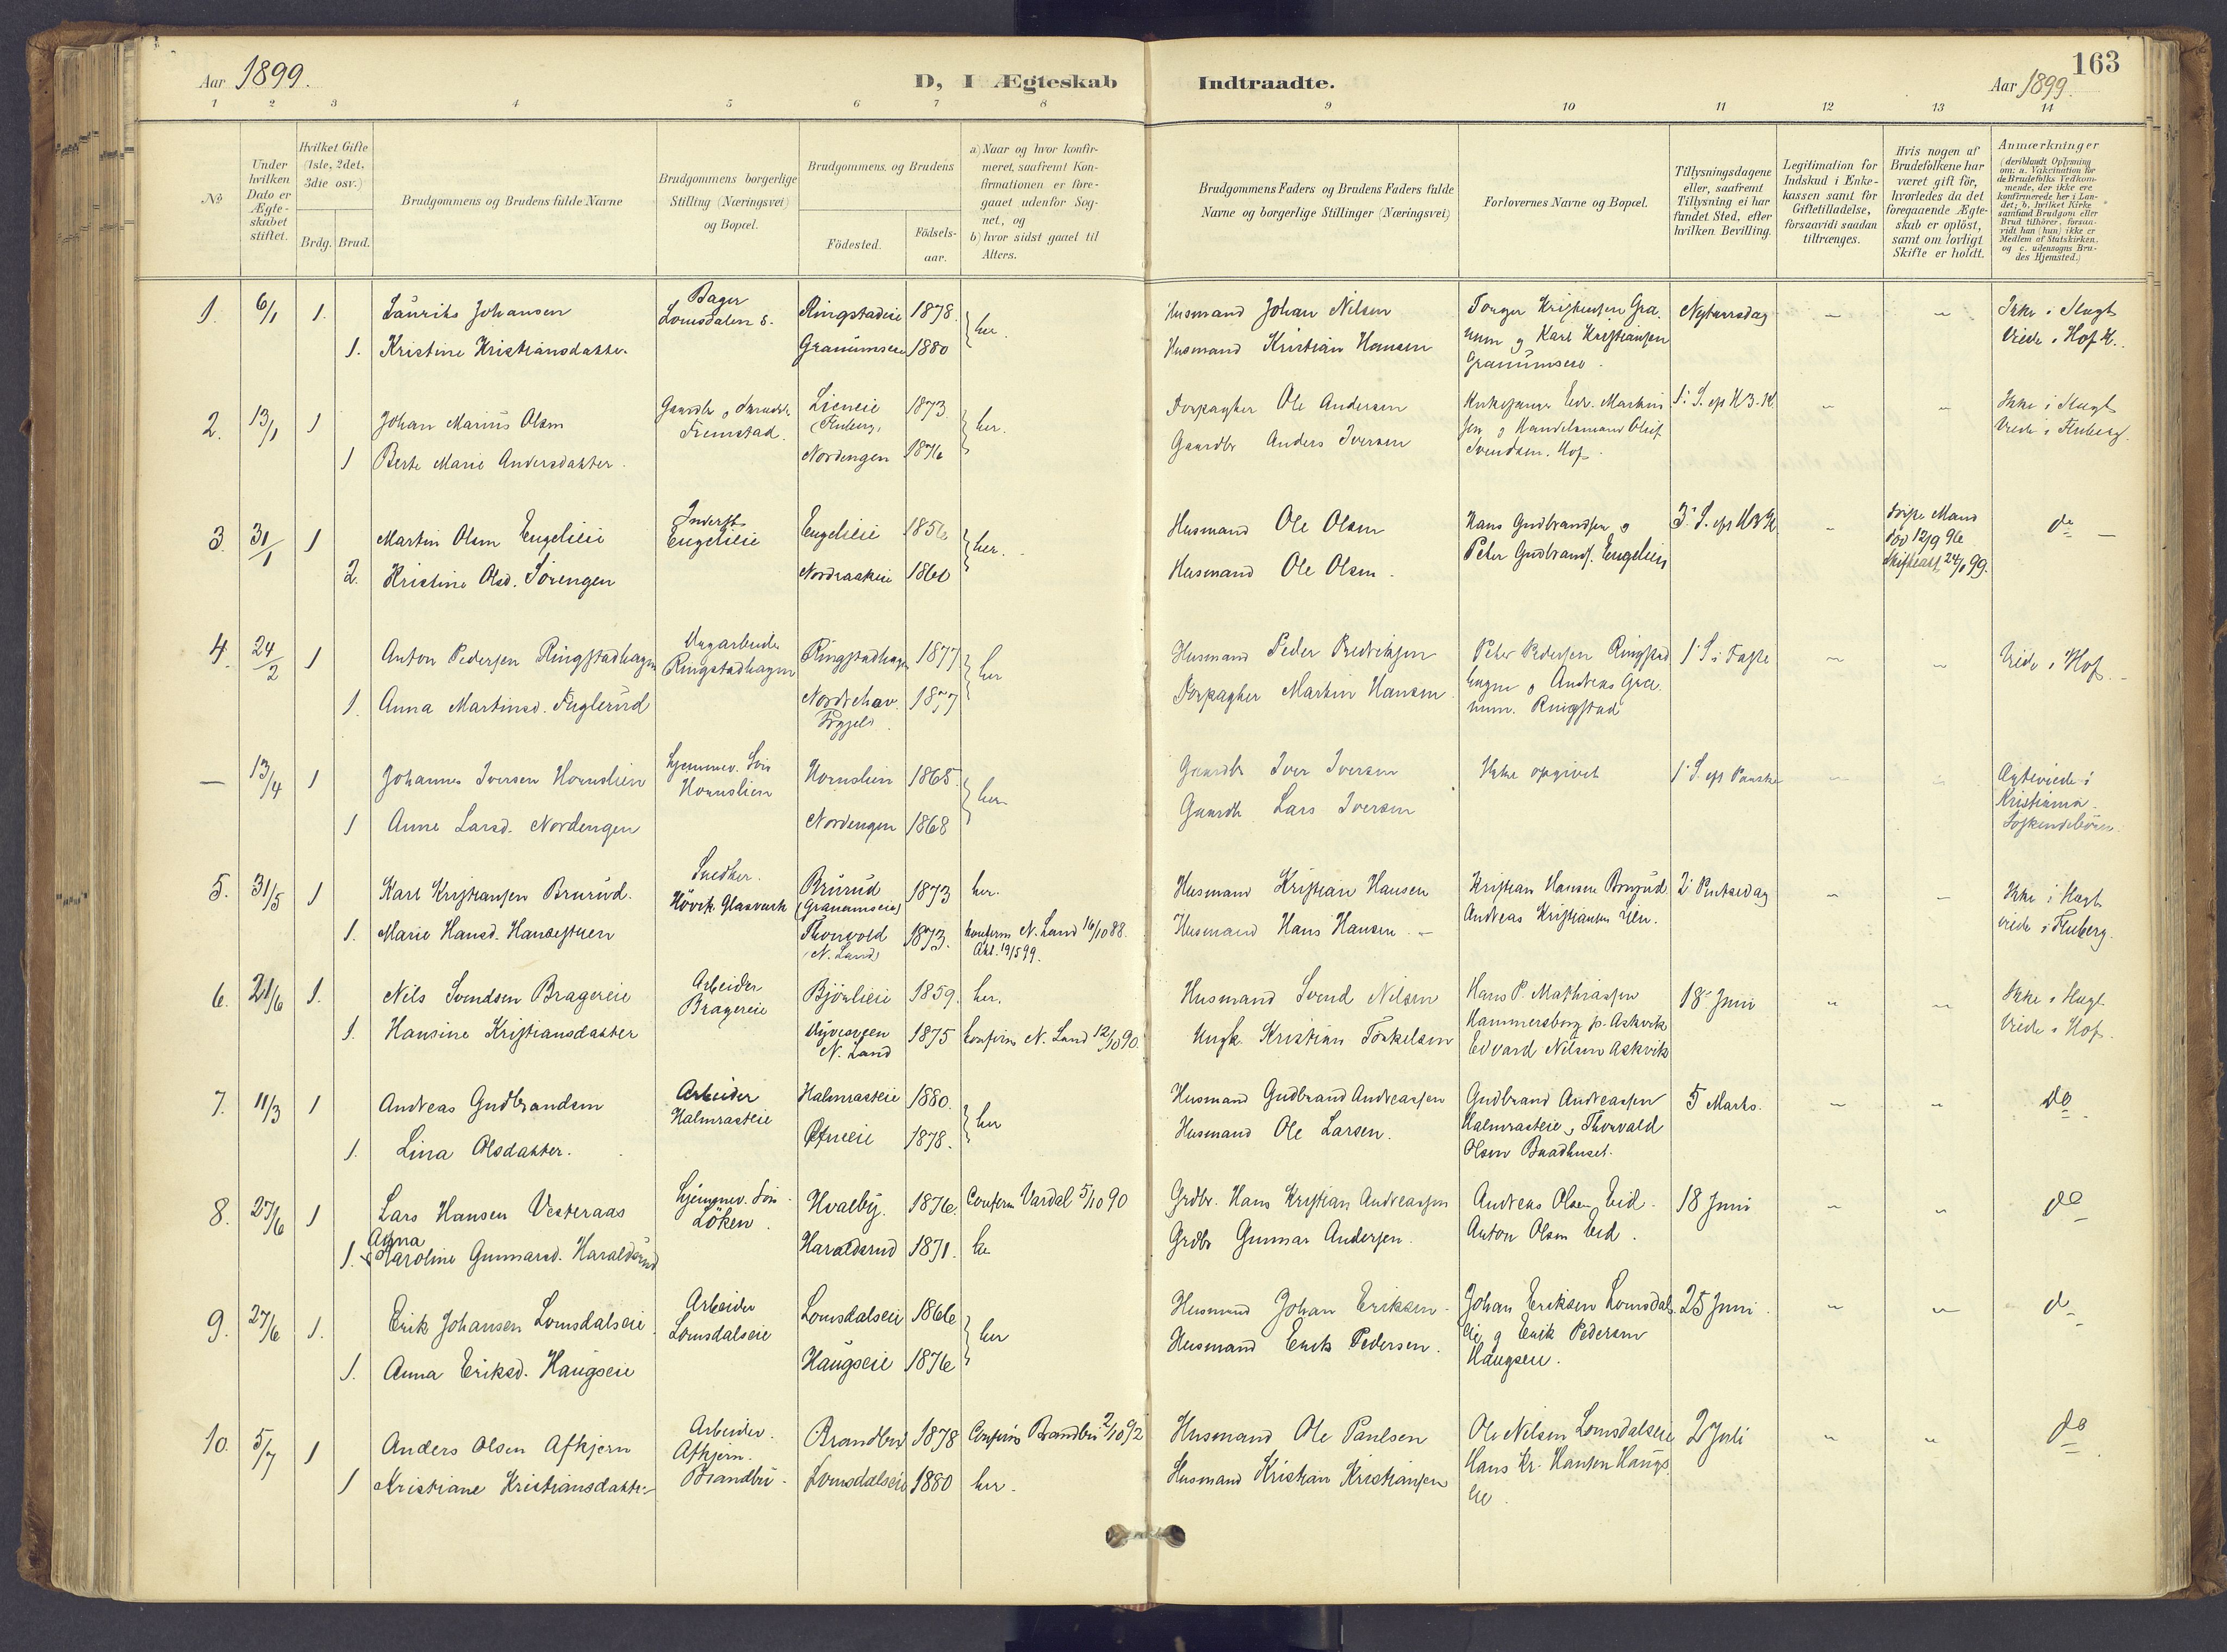 Aar 1899.
D, I Ægteskab Indtraadte.
163
Aar 1899.
1 2 3 4 5 6 7 8 9 10 11 12 13 14
№
Under hvilken Dato er Ægteskabet stiftet.
Hvilket Gifte (1ste, 2det, 3die osv.)
Brdg. Brud.
Brudgommens og Brudens fulde Navne
Brudgommens borgerlige Stilling (Næringsvei) og Bopæl.
Brudgommens og Brudens
Födested.
Födselsaar.
a) Naar og hvor konfirmeret, saafremt Konfirmationen er foregaaet udenfor Sognet, og
b) hvor sidst gaaet til Alters.
Brudgommens Faders og Brudens Faders fulde Navne og borgerlige Stillinger (Næringsvei)
Forlovernes Navne og Bopæl.
Tillysningsdagene eller, saafremt Tillysning ei har fundet Sted, efter hvilken Bevilling.
Legitimation for Indskud i Enkekassen samt for Giftetilladelse, forsaavidt saadan tiltrænges.
Hvis nogen af Brudefolkene har været gift för, hvorledes da det foregaaende Ægteskab er oplöst, samt om lovligt Skifte er holdt.
Anmærkninger
(deriblandt Oplysning om: a. Vakcination for de Brudefolks Vedkommende, der ikke ere konfirmerede her i Landet; b. hvilket Kirkesamfund Brudgom eller Brud tilhörer, forsaavidt han (hun) ikke er Medlem af Statskirken, og c. udensogns Brudes Hjemsted.)
1. 6/1 1. Lauriks Johansen Bager Lomsdalen s. Ringstadeie 1878. her. Husmand Johan Nilsen Nytaarsdag Ikke i Slægt
1. Kristine Kristiansdatter Granumseie 1880 Husmand Kristian Hansen Karl Kristiansen Granumseie Viede i Hof K.
2. 13/1 1 Johan Marius Olsen Fremstad. Lieneie (Fluberg) 1873 her. Forpagter Ole Andersen Ikke i Slægt
1 Berte Marie Andersdatter. Nordengen 1876 Gaardbr Anders Iversen Handelsmand Oluf Svendsen. Hof. Viede i Fluberg.
3. 31/1 1 Martin Olsen Engelieie Inderst Engelieie Engelieie 1856 her. Husmand Ole Olsen Hans Gudbrandsen og död 12/9 96 do
2. Kristine Olsd. Sörengen 1860 Husmand Ole Olsen. Peter Gudbrands. Engelien
4. 24/2 1 Anton Pedersen Ringstadhagen Ringstadhagen Ringstadhagen 1877 her Husmand Peder Fredriksen Peter Pedersen Ringstad 1 S i Faste Viede i Hof.
1. Anna Martinsd. Fuglerud Nordrehov 1877 Forpagter Martin Hansen. hagen og Andreas Granum. Ringstad
— 13/4 1 Johannes Iversen Hornslien Hjemmev. Sön Hornslien Hornslien 1865. her Gaardbr Iver Iversen Ikke opgivet 1 S. ef Paaske Kristiania
1 Anne Larsd. Nordengen Nordengen 1868 Gaardbr Lars Iversen Söskendebörn.
5. 31/5 1 Karl Kristiansen Brurud. Snedker. Hövik Glasværk Brurud (Granumseie) 1873 her. Husmand Kristian Hansen Kristian Hansen Brurud 2 Pintsedag Ikke i Slægt
1. Marie Hansd. Hansestuen Thonvold (N. Land) 1873. Konferm N. Land 16/10 88. Alt. 19/5 99. Husmand Hans Hansen. Andreas Kristiansen viede i Fluberg.
6. 21/6 1. Nils Svendsen Bragereie Arbeider Bragereie Björlieie 1859. her. Husmand Svend Nilsen Hans P. Mathiassen Hammersborg 18 Juni Ikke i Slægt
1. Hansine Kristiansdatter N. Land 1875 Confirm N. Land 12/10 90. Ungk. Kristian Torkelsen Edvard Nilsen Askvik Viede i Hof.
7. 11/3 1 Andreas Gudbrandsen Arbeider Halmrasteie Halmrasteie 1880. her Husmand Gudbrand Andreassen Gudbrand Andreassen 5 Marts. do
1. Lina Olsdatter. 1878. Husmand Ole Larsen. Halmrasteie, Thorvald Olsen Baadhuset.
8. 27/6 1 Lars Hansen Vesteraas Hjemmev. Sön Löken. Hvalby. 1876. Conferm Vardal 5/10 90 Grdbr. Hans Kristian Andreassen Andreas Olsen Eid. 18 Juni do
1. Anna Karoline Gunnarsd. Haraldsrud Haraldsrud 1871. her Grdbr Gunnar Andersen. Anton Olsen Eid.
9. 27/6 1. Erik Johansen Lomsdalseie Arbeider Lomsdalseie Lomsdalseie 1866 her Husmand Johan Eriksen Johan Eriksen Lomsdals- 25 Juni. do
1. Anna Eriksd. Haugseie Haugseie 1876 Husmand Erik Pedersen. eie og Erik Pedersen Haugseie.
10. 5/7 1 Anders Olsen Afkjern Arbeider. Afkjern. Brandbu 1878 Confirm Brandbu 2/10 92 Husmand Ole Paulsen Ole Nilsen Lomsdalseie 2 Juli do
1 Kristiane Kristiansdatter Brandbu. Lomsdalseie 1880 her. Husmand Kristian Kristiansen Hans Kr. Hansen Haugs- eie.